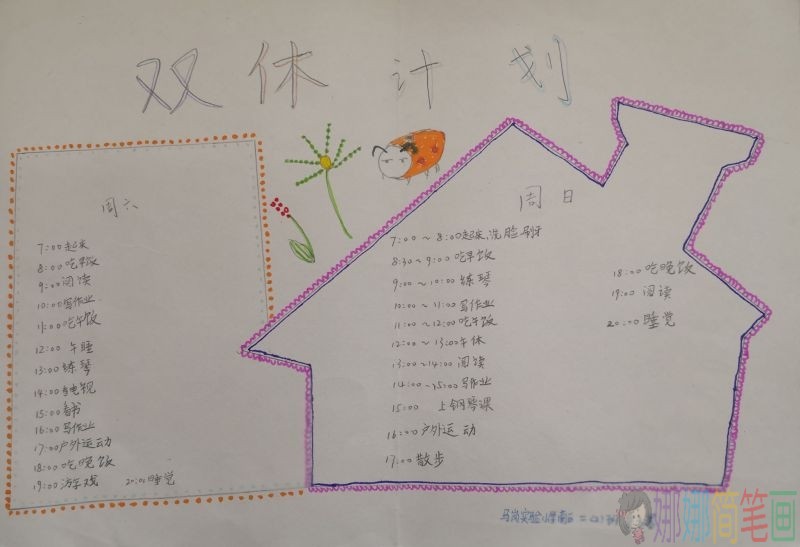 双休计划
周六
7:00起来
8:00吃早饭
9:00阅读
10:00写作业
11:00吃午饭
12:00 午睡
13:00练琴
14:00看电视
15:00看书
16:00写作业
17:00户外运动
18:00吃晚饭
19:00游戏 20:00睡觉
周日
7:00~8:00起来,洗脸刷牙
8:30~9:00吃早饭
9:00~10:00练琴
10:00~11:00写作业
11:00~12:00吃午饭
12:00~13:00午休
13:00~14:00阅读
14:00~15:00写作业
15:00 上钢琴课
16:00户外运动
17:00散步
18:00吃晚饭
19:00阅读
20:00睡觉
马岗实验小学
娜娜简笔画